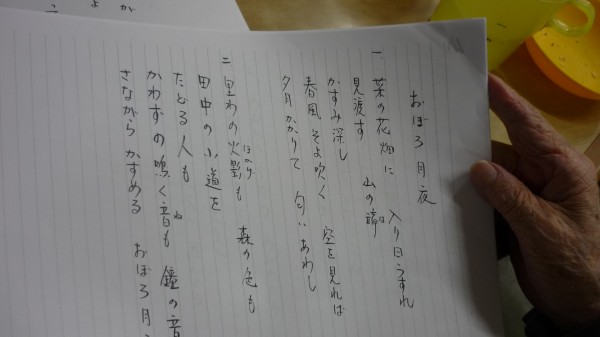 おぼろ月夜
一、菜の花畑に 入り日うすれ
見渡す 山の端
かすみ深し
春風そよ吹く 空を見れば
夕月かかりて 匂いあわし
二、里わの火影も 森の色も
田中の小道を
たどる人も
かわずの鳴く音も 鐘の音
さながら かすめる おぼろ月